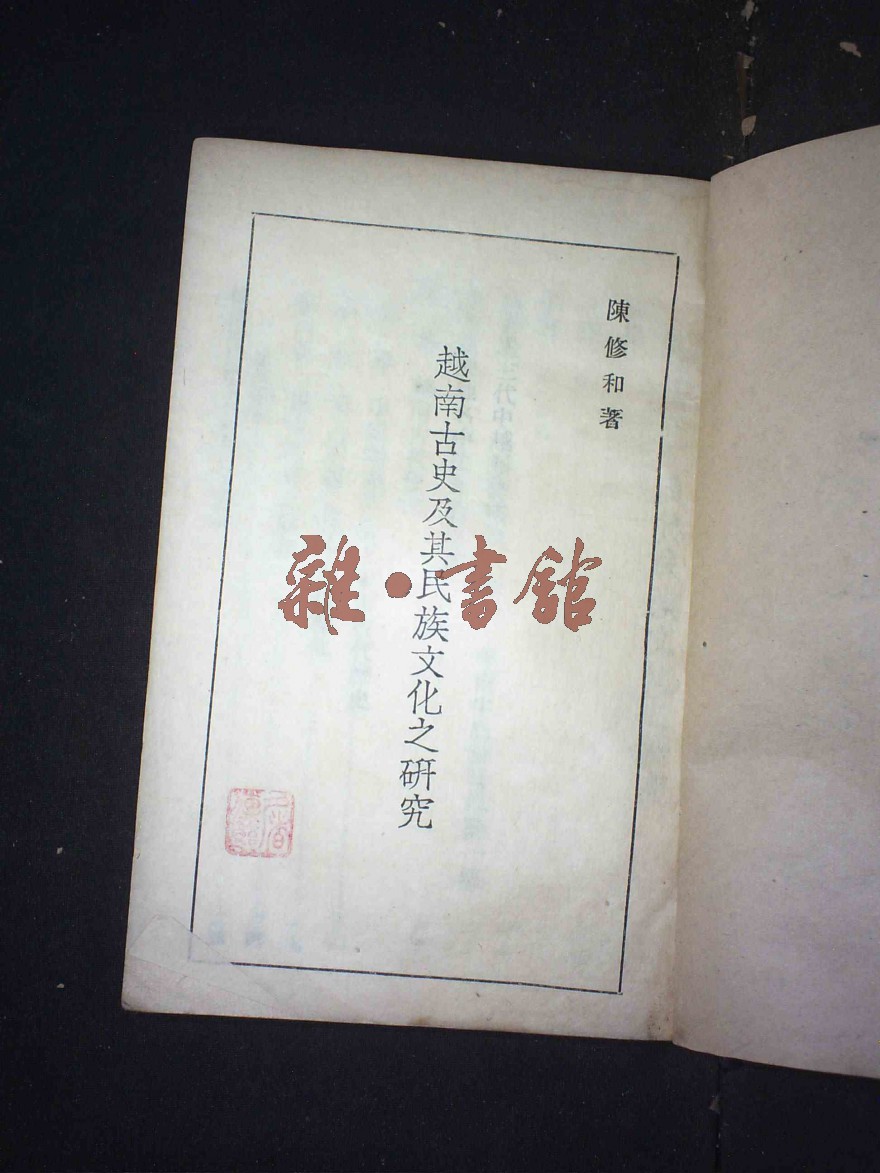 陳修和著
越南古史及其民族文化之研究
雜·書館